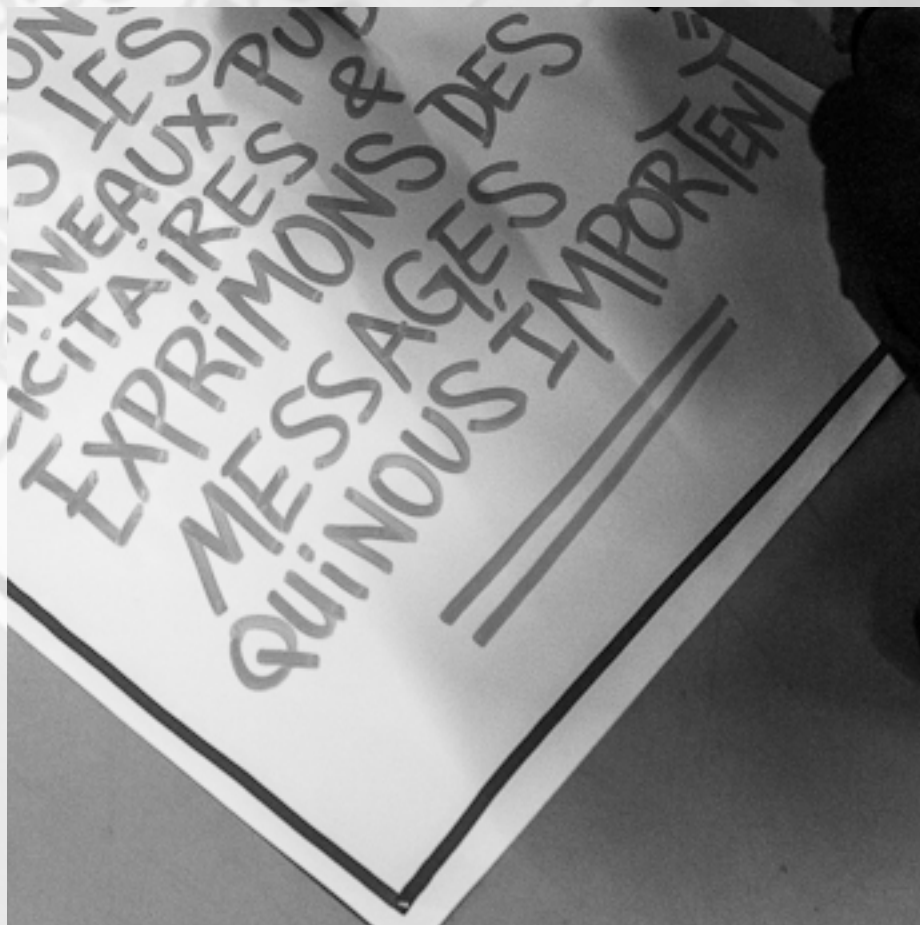 ONS
S LES
NNEAUX PUB
LICITAIRES &
EXPRIMONS DES
MESSAGES
QUI NOUS IMPORTENT